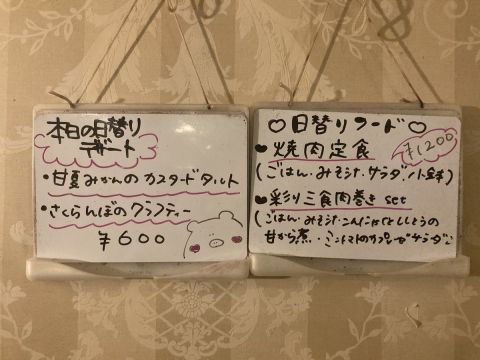 本日の日替り
デザート
・甘夏みかんのカスタードタルト
・さくらんぼのクラフティー
¥600
♡日替りフード♡
¥1200
焼肉定食
(ごはん・みそ汁・サラダ・小鉢)
彩り三食肉巻き set
(ごはん・みそ汁・こんにゃくとししとうの
甘から煮・ミニトマトのカプレーゼサラダ)